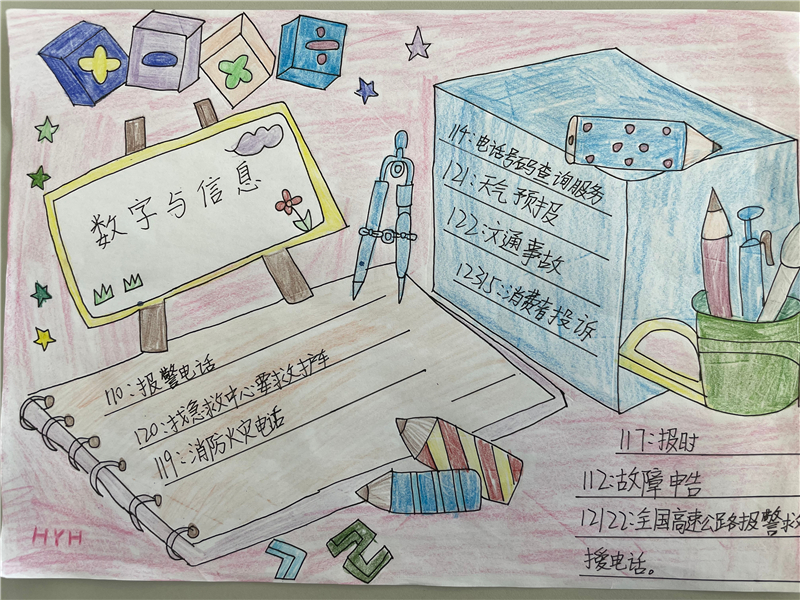 数字与信息
114:电话号码查询服务
121:天气预报
122:交通事故
12315:消费者投诉
110:报警电话
120:找急救中心要求救护车
119:消防火灾电话
117:报时
112:故障申告
12122:全国高速公路报警救
援电话。
HYH